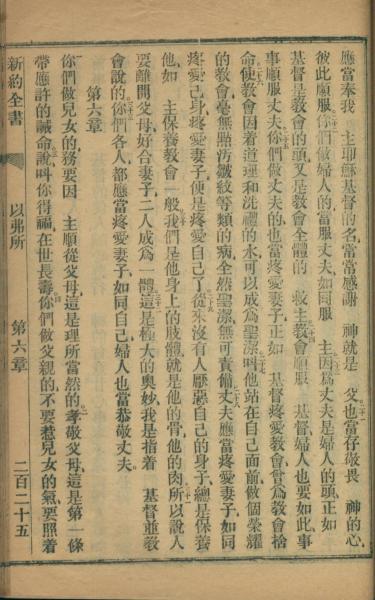 應當奉我 主耶穌基督的名常常感謝 神就是 父也當存敬畏 神的心
彼此順服你們做婦人的當服丈夫如同服 主因爲丈夫是婦人的頭正如
基督是教會的頭又是教會全體的 救主教會順 基督婦人也要如此事
事順服丈夫你們做丈夫的也當疼愛妻子正如 基督疼愛教會曾爲教會捨
命使教會因着道理和洗禮的水可以成爲聖潔叫他站在自己面前做個榮耀
的教會毫無點汚皺紋等類的病全然聖潔無可責備丈夫應當疼愛妻子如同
疼愛己身疼愛妻子便是疼愛自己了從來沒有人厭惡自己的身子總是保養
他如 主保養教會一般我們是他身上的肢體就是他的骨他的肉所以說人
要離開父母好合妻子二人成爲一體這是極大的奧妙我是指着 基督並教
會說的你們各人都應當疼愛妻子如同自己婦人也當恭敬丈夫
第六章
你們做兒女的務要因 主順從父母這是理所當然的孝敬父母這是第一條
帶應許的誡命說叫你得福在世長壽你們做父親的不要惹兒女的氣要照着
新約全書 以弗所 第六章 二百二十五